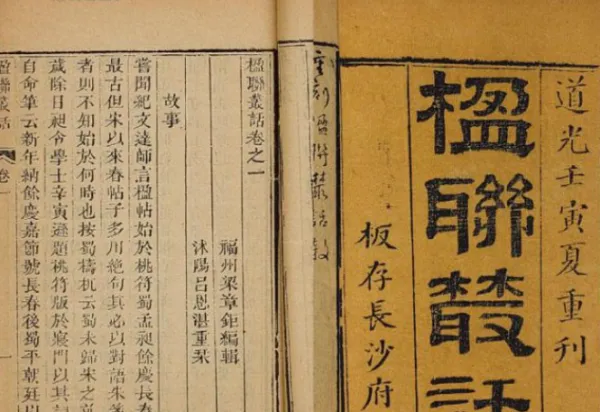 道光壬寅夏重刊
楹聯叢話
板存長沙府
楹聯叢話卷之一
福州梁章鉅編輯
沭陽呂恩湛重栞
故事
嘗聞紀文達師言楹帖始於桃符蜀孟昶餘慶長春
最古但宋以來春帖子多用絕句其必以對語朱
者則不知始於何時也按蜀檮杌云蜀未歸宋之前
歲除日昶令學士辛寅遜題桃符版於寢門以其詞
自命筆云新年納餘慶嘉節號長春後蜀平朝廷以
楹聯叢話
卷一